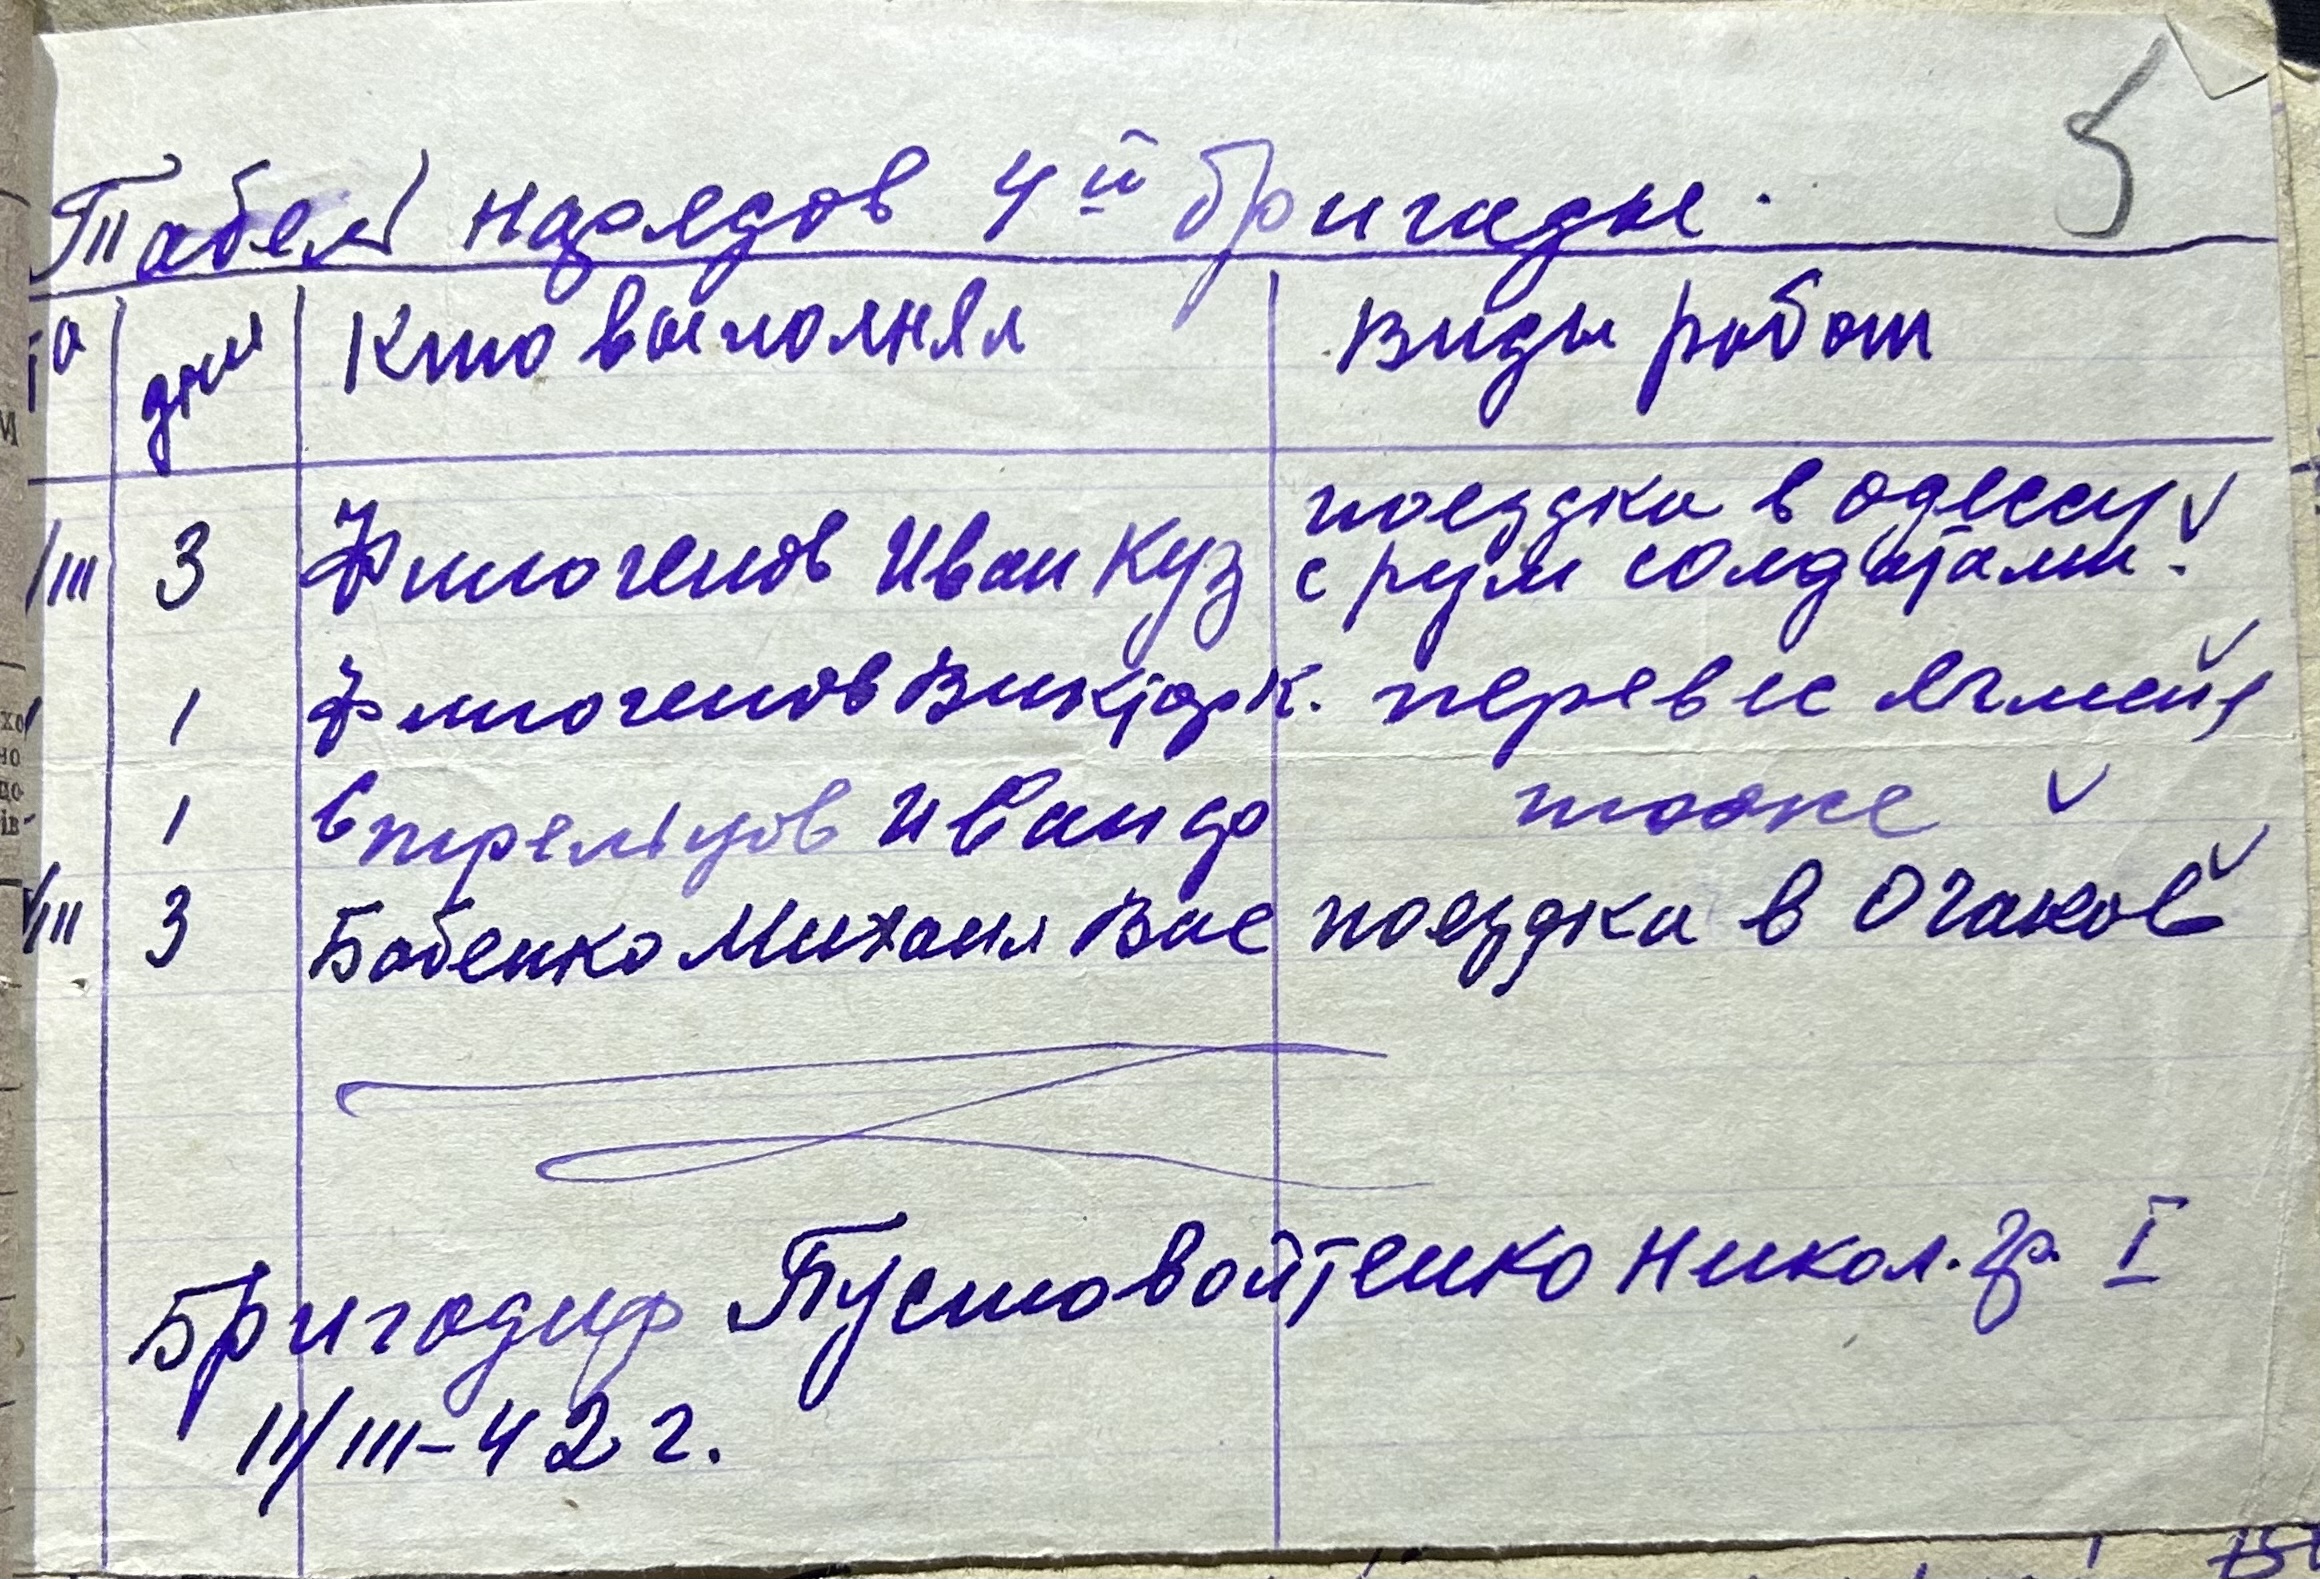 5
Табель нарядов 4й бригады.
дни Кто выполнял виды работ
/III 3 Филогенов Иван Куз поездка в одессу
с рум солдатами.
1 Филогенов Виктор К. перевес ячменя
1 Иван тоже
/III 3 Бабенко Михаил Вас поездка в Очаков
Бригадир Пустовойтенко Никол. гр. I
11/III-42 г.